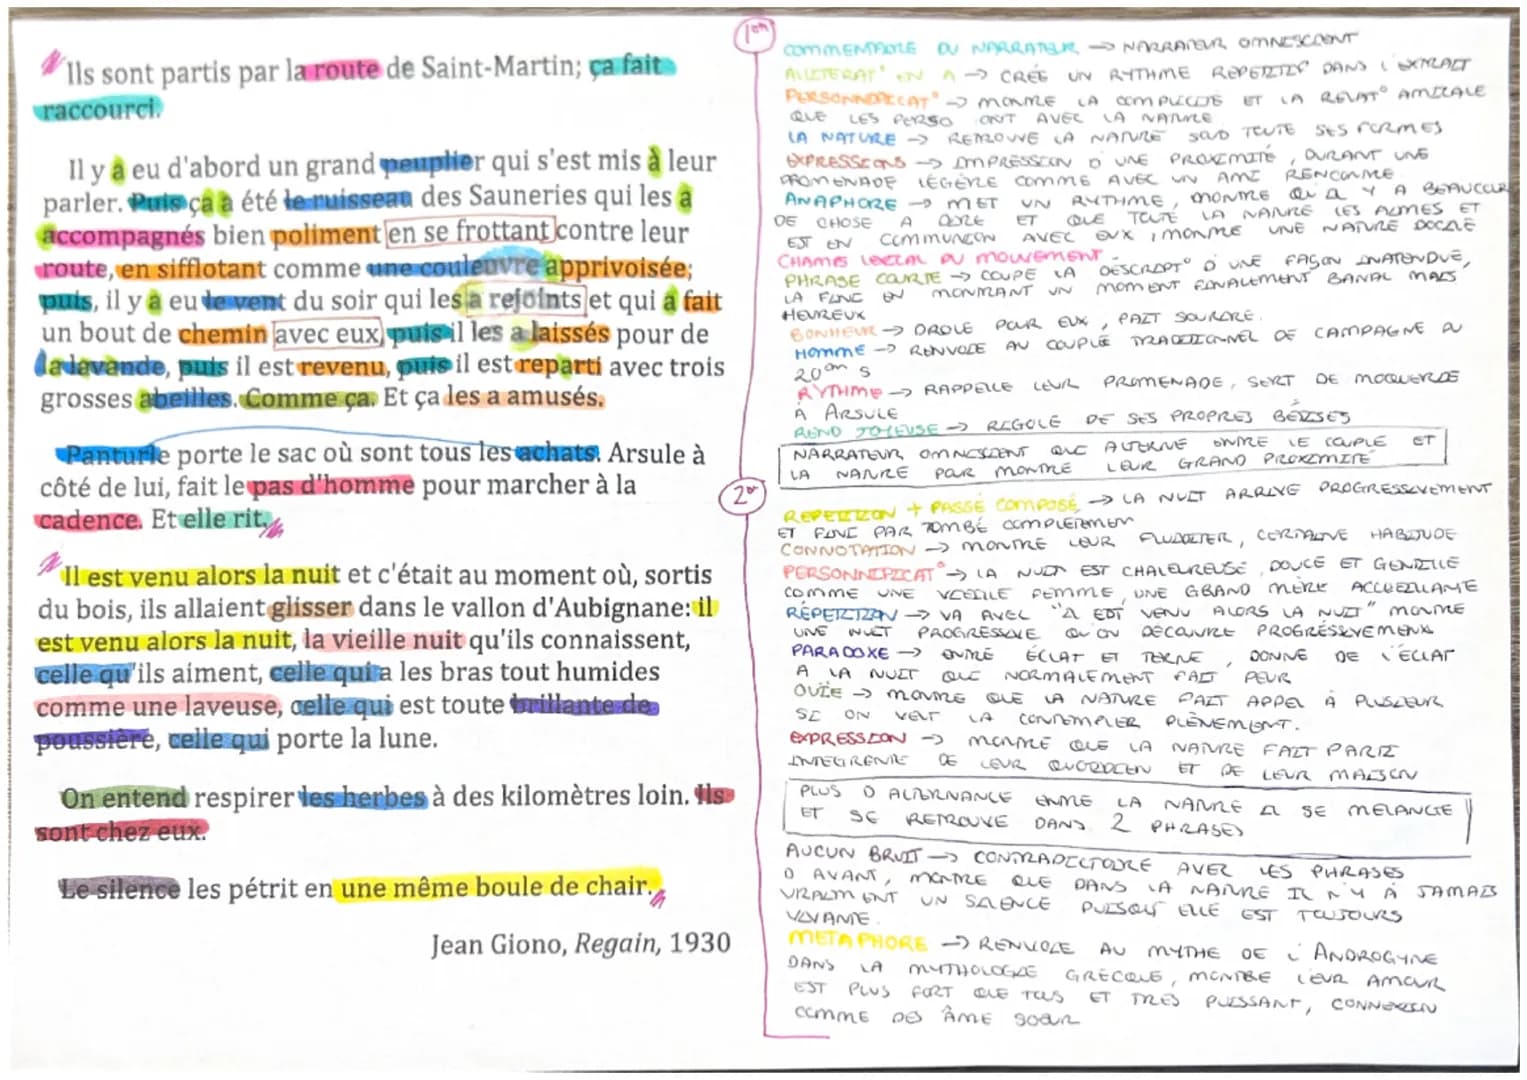 Ils sont partis par la route de Saint-Martin; ça fait
raccourci.
Il y a eu d'abord un grand peuplier qui s'est mis à leur
parler. Puis ça a été le ruisseau des Sauneries qui les a
accompagnés bien poliment en se frottant contre leur
route, en sifflotant comme une couleuvre apprivoisée;
puis, il y a eu le vent du soir qui les a rejoints et qui a fait
un bout de chemin avec eux, puis il les a laissés pour de
la lavande, puis il est revenu, puis il est reparti avec trois
grosses abeilles. Comme ça. Et ça les a amusés.
Panturle porte le sac où sont tous les achats. Arsule à
côté de lui, fait le pas d'homme pour marcher à la
cadence. Et elle rit.
Il est venu alors la nuit et c'était au moment où, sortis
du bois, ils allaient glisser dans le vallon d'Aubignane: il
est venu alors la nuit, la vieille nuit qu'ils connaissent,
celle qu'ils aiment, celle qui a les bras tout humides
comme une laveuse, celle qui est toute brillante de
poussière, celle qui porte la lune.
On entend respirer les herbes à des kilomètres loin. Ils
sont chez eux.
Le silence les pétrit en une même boule de chair.
Jean Giono, Regain, 1930
1er
COMMENTAIRE DU NARRATEUR → NARRATEUR OMNISCIENT
ALLITERAT° EN A → CRÉE UN RYTHME REPETITIF DANS L'EXTRAIT
PERSONNIFICAT° → MONTRE LA COMPLICITÉ ET LA RELAT° AMICALE
QUE LES PERSO ONT AVEC LA NATURE
LA NATURE → RETROUVE LA NATURE SOUS TOUTE SES FORMES
EXPRESSIONS → IMPRESSION D'UNE PROXIMITÉ, DURANT UNE
PROMENADE LÉGÈRE COMME AVEC UN AMI RENCONTRE
ANAPHORE → MET UN RYTHME, MONTRE QU'IL Y A BEAUCOUP
DE CHOSE A DIRE ET QUE TOUTE LA NATURE LES ALMES ET
EST EN COMMUNION AVEC EUX, MONTRE UNE NATURE DOCILE
CHAMPS LEXICAL DU MOUVEMENT
PHRASE COURTE → COUPE LA DESCRIPT° D'UNE FAÇON INATENDUE,
LA FINIE EN MONTRANT UN MOMENT FINALEMENT BANAL MAIS
HEUREUX
BONHEUR → DROLE POUR EUX, FAIT SOURIRE.
HOMME → RENVOIE AU COUPLE TRADITIONNEL DE CAMPAGNE DU
20em S
RYTHME → RAPPELLE LEUR PROMENADE, SERT DE MOQUERIE
À ARSULE
REND JOYEUSE → RIGOLE DE SES PROPRES BÊTISES
NARRATEUR OMNISCIENT QUI ALTERNE ENTRE LE COUPLE ET
LA NATURE POUR MONTRE LEUR GRAND PROXIMITÉ
2e
REPETITION + PASSÉ COMPOSÉ → LA NUIT ARRIVE PROGRESSIVEMENT
ET FINI PAR TOMBÉ COMPLETEMEN
CONNOTATION → MONTRE LEUR FLUIDITER, CERTAINE HABITUDE
PERSONNIFICAT° → LA NUIT EST CHALEUREUSE, DOUCE ET GENTILLE
COMME UNE VIEILLE FEMME, UNE GRAND MÈRE ACCUEILLANTE
RÉPETITION → VA AVEC "IL EST VENU ALORS LA NUIT" MONTRE
UNE NUIT PROGRESSIVE QU'ON DECOUVRE PROGRÉSSIVEMENT
PARADOXE → ENTRE ÉCLAT ET TERNE, DONNE DE L'ÉCLAT
A LA NUIT QUI NORMALEMENT FAIT PEUR
OUÏE → MONTRE QUE LA NATURE FAIT APPEL À PLUSIEUR
SI ON VEUT LA CONTEMPLER PLÈNEMENT.
EXPRESSION → MONTRE QUE LA NATURE FAIT PARTI
INTEGRENTE DE LEUR QUOTIDIEN ET DE LEUR MAISON
PLUS D'ALTERNANCE ENTRE LA NATURE IL SE MELANGE
ET SE RETROUVE DANS 2 PHRASES
AUCUN BRUIT → CONTRADICTOIRE AVEC LES PHRASES
D'AVANT, MONTRE QUE DANS LA NATURE IL N'Y À JAMAIS
VRAIMENT UN SILENCE PUISQU'ELLE EST TOUJOURS
VIVANTE.
METAPHORE → RENVOIE AU MYTHE DE L'ANDROGYNE
DANS LA MYTHOLOGIE GRECQUE, MONTRE LEUR AMOUR
EST PLUS FORT QUE TOUS ET TRES PUISSANT, CONNEXION
COMME DES ÂME SOEUR